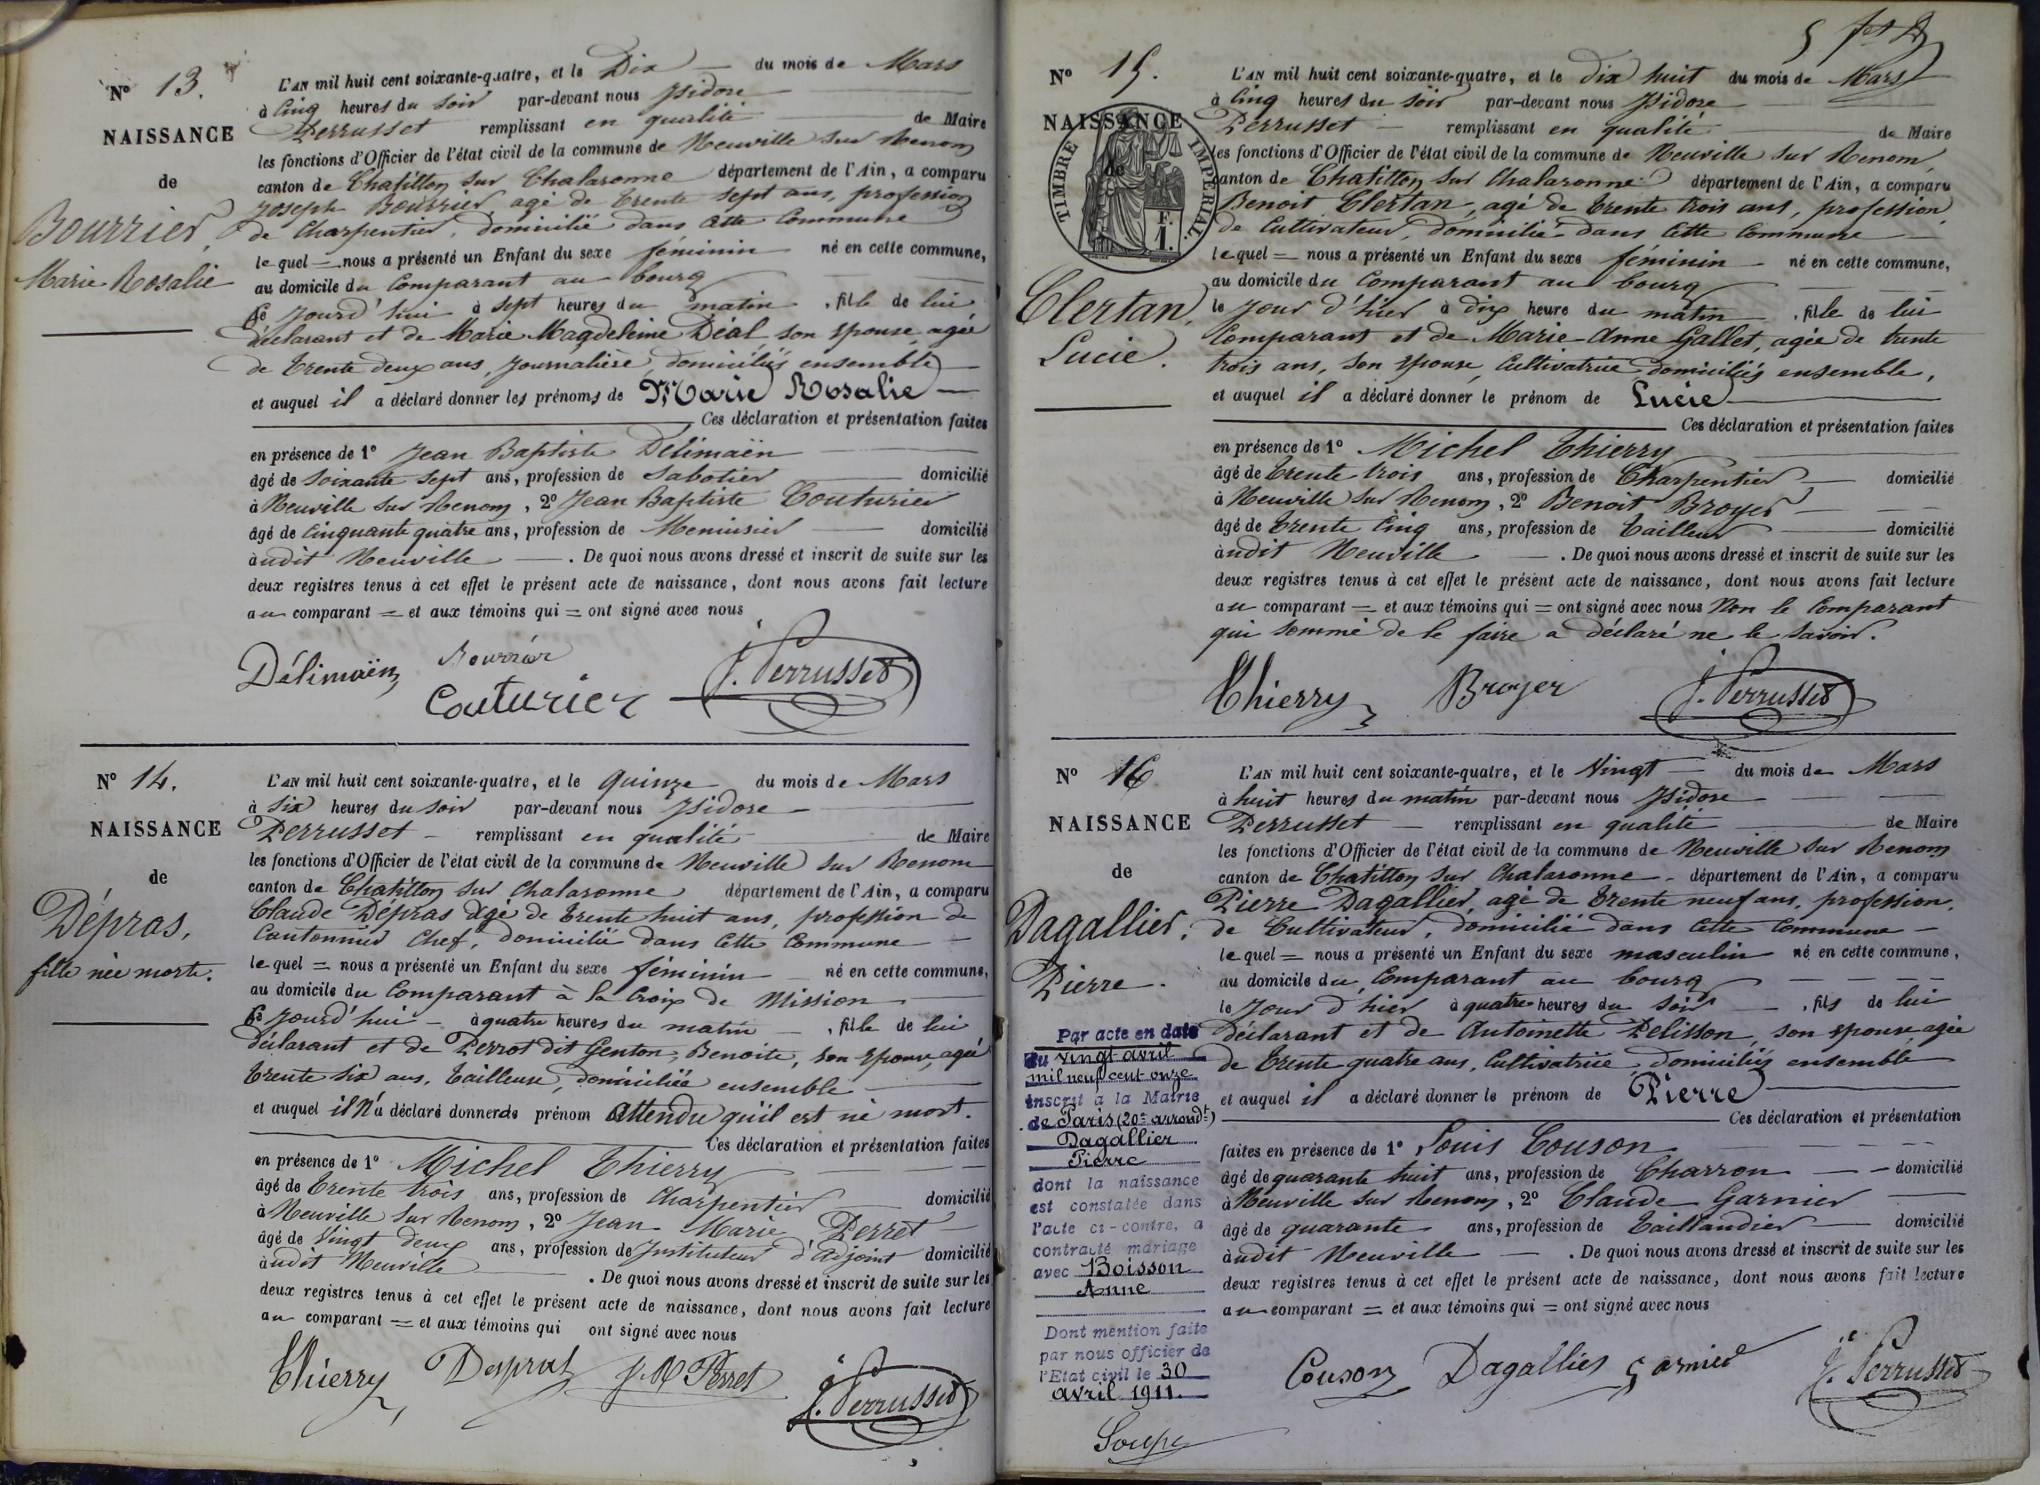 N° 13.
NAISSANCE
de
Bourrier,
Marie Rosalie
L'AN mil huit cent soixante-quatre, et le Dix du mois de Mars
à Cinq heures du soir par-devant nous Isidore
Perrusset remplissant en qualité de Maire
les fonctions d'Officier de l'état civil de la commune de Neuville sur Renom
canton de Chatillon sur Chalaronne département de l'Ain, a comparu
Joseph Bourrier, agé de trente sept ans, profession
de Charpentier, domicilié dans cette Commune
lequel = nous a présenté un Enfant du sexe féminin né en cette commune,
au domicile du Comparant au bourg
ce jourd'hui à sept heures du matin, fille de lui
déclarant et de Marie Magdeleine Déal, son épouse, agée
de trente deux ans, journalière, domiciliés ensemble
et auquel il a déclaré donner les prénoms de Marie Rosalie
Ces déclaration et présentation faites
en présence de 1° Jean Baptiste Délimaën
âgé de soixante sept ans, profession de Sabotier domicilié
à Neuville sur Renom, 2° Jean Baptiste Couturier
âgé de cinquante quatre ans, profession de Menuisier domicilié
àudit Neuville. De quoi nous avons dressé et inscrit de suite sur les
deux registres tenus à cet effet le présent acte de naissance, dont nous avons fait lecture
au comparant = et aux témoins qui = ont signé avec nous
Délimaën Bourrier
Couturier J. Perrusset
N° 14.
NAISSANCE
de
Dépras,
fille née morte.
L'AN mil huit cent soixante-quatre, et le quinze du mois de Mars
à six heures du soir par-devant nous Isidore
Perrusset remplissant en qualité de Maire
les fonctions d'Officier de l'état civil de la commune de Neuville sur Renom
canton de Chatillon sur Chalaronne département de l'Ain, a comparu
Claude Dépras agé de trente huit ans, profession de
Cantonnier Chef, domicilié dans cette Commune
lequel = nous a présenté un Enfant du sexe féminin né en cette commune,
au domicile du Comparant à la Croix de Mission
ce jourd'hui à quatre heures du matin, fille de lui
déclarant et de Perrot dit Genton, Benoite, son épouse, agée
trente six ans, tailleuse, domiciliée ensemble
et auquel il n'a déclaré donner de prénom attendu qu'il est né mort.
Ces déclaration et présentation faites
en présence de 1° Michel Thierry
âgé de trente trois ans, profession de Charpentier domicilié
à Neuville sur Renom, 2° Jean Marie Perret
âgé de vingt deux ans, profession de Instituteur d'adjoint domicilié
àudit Neuville. De quoi nous avons dressé et inscrit de suite sur les
deux registres tenus à cet effet le présent acte de naissance, dont nous avons fait lecture
au comparant = et aux témoins qui ont signé avec nous
Thierry Desprat J. M Perret J. Perrusset
N° 15.
NAISSANCE
de
TIMBRE IMPÉRIAL.
F.
1.
Clertan,
Lucie.
L'AN mil huit cent soixante-quatre, et le dix huit du mois de Mars
à Cinq heures du soir par-devant nous Isidore
Perrusset remplissant en qualité de Maire
les fonctions d'Officier de l'état civil de la commune de Neuville sur Renom
canton de Chatillon sur Chalaronne département de l'Ain, a comparu
Benoit Clertan, agé de trente trois ans, profession
de Cultivateur, domicilié dans cette Commune
lequel = nous a présenté un Enfant du sexe féminin né en cette commune,
au domicile du Comparant au bourg
le jour d'hier à dix heure du matin, fille de lui
Comparant et de Marie-Anne Gallet, agée de trente
trois ans, son épouse, cultivatrice domiciliés ensemble,
et auquel il a déclaré donner le prénom de Lucie
Ces déclaration et présentation faites
en présence de 1° Michel Thierry
âgé de trente trois ans, profession de Charpentier domicilié
à Neuville sur Renom, 2° Benoit Broyer
âgé de trente cinq ans, profession de tailleur domicilié
àudit Neuville. De quoi nous avons dressé et inscrit de suite sur les
deux registres tenus à cet effet le présent acte de naissance, dont nous avons fait lecture
au comparant = et aux témoins qui = ont signé avec nous Non le Comparant
qui sommé de le faire a déclaré ne le savoir.
Thierry Broyer J. Perrusset
N° 16
NAISSANCE
de
Dagallier,
Pierre.
Par acte en date
du vingt avril
mil neuf cent onze
inscrit à la Mairie
de Paris (20e arrondt)
Dagallier
Pierre
dont la naissance
est constatée dans
l'acte ci-contre, a
contracté mariage
avec Boisson
Anne
Dont mention faite
par nous officier de
l'Etat civil le 30
avril 1911.
L'AN mil huit cent soixante-quatre, et le Vingt du mois de Mars
à huit heures du matin par-devant nous Isidore
Perrusset remplissant en qualité de Maire
les fonctions d'Officier de l'état civil de la commune de Neuville sur Renom
canton de Chatillon sur Chalaronne département de l'Ain, a comparu
Pierre Dagallier, agé de trente neuf ans, profession,
de Cultivateur, domicilié dans cette Commune
lequel = nous a présenté un Enfant du sexe masculin né en cette commune,
au domicile du Comparant au bourg
le jour d'hier à quatre heures du soir, fils de lui
déclarant et de Antoinette Pelisson, son épouse, agée
de trente quatre ans, Cultivatrice, domiciliés ensemble
et auquel il a déclaré donner le prénom de Pierre
Ces déclaration et présentation
faites en présence de 1° Louis Couson
âgé de quarante huit ans, profession de Charron domicilié
à Neuville sur Renom, 2° Claude Garnier
âgé de quarante ans, profession de taillandier domicilié
àudit Neuville. De quoi nous avons dressé et inscrit de suite sur les
deux registres tenus à cet effet le présent acte de naissance, dont nous avons fait lecture
au comparant = et aux témoins qui = ont signé avec nous
Couson Dagallier Garnier J. Perrusset